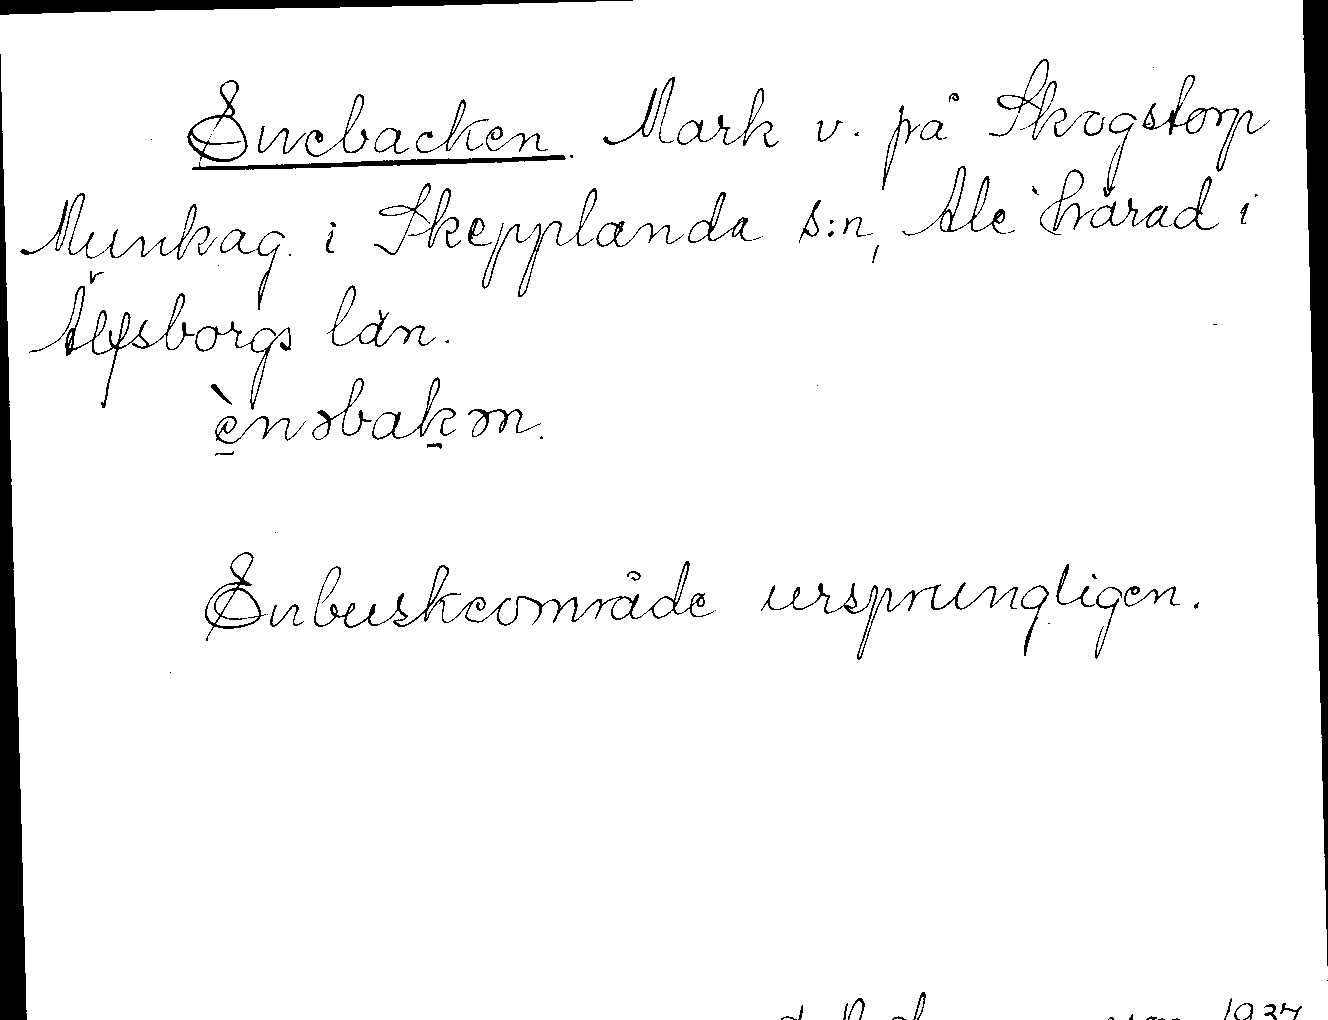 Enebacken. Mark v. på Skogstorp
Munkag. i Skepplanda s:n, Ale härad i
Älvsborgs län.
ènəbakən.
Enbuskeområde ursprungligen.
1937